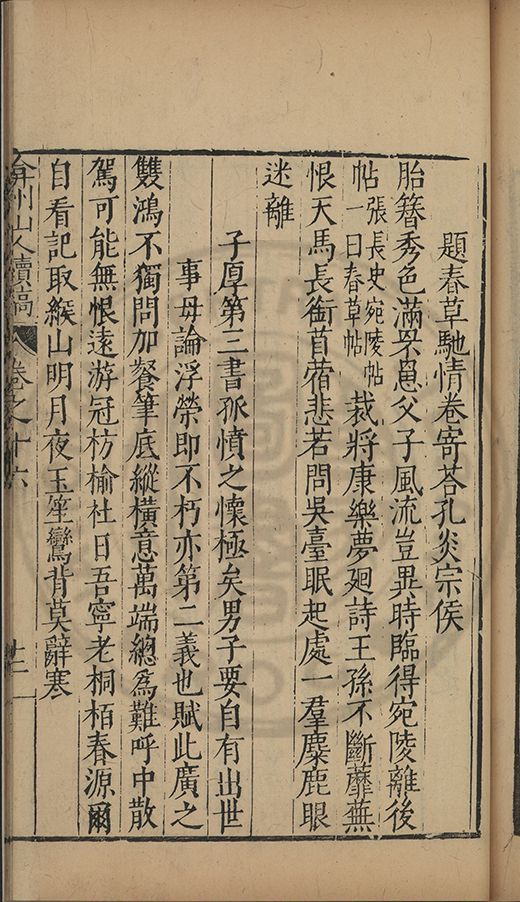 題春草馳情卷寄荅孔炎宗侯
胎簪秀色滿罘罳父子風流豈異時臨得宛陵離後
帖張長史宛陵帖一曰春草帖裁將康樂夢廻詩王孫不斷蘼蕪
恨天馬長銜苜蓿悲若問吳臺眠起處一羣麋鹿眼
迷離
子厚第三書孤憤之懷極矣男子要自有出世
事毋論浮榮即不朽亦第二義也賦此廣之
雙鴻不獨問加餐筆底縱橫意萬端總爲難呼中散
駕可能無恨遠游冠枌榆社日吾寧老桐栢春源爾
自看記取緱山明月夜玉笙鸞背莫辭寒
弇州山人續稿 卷之十六